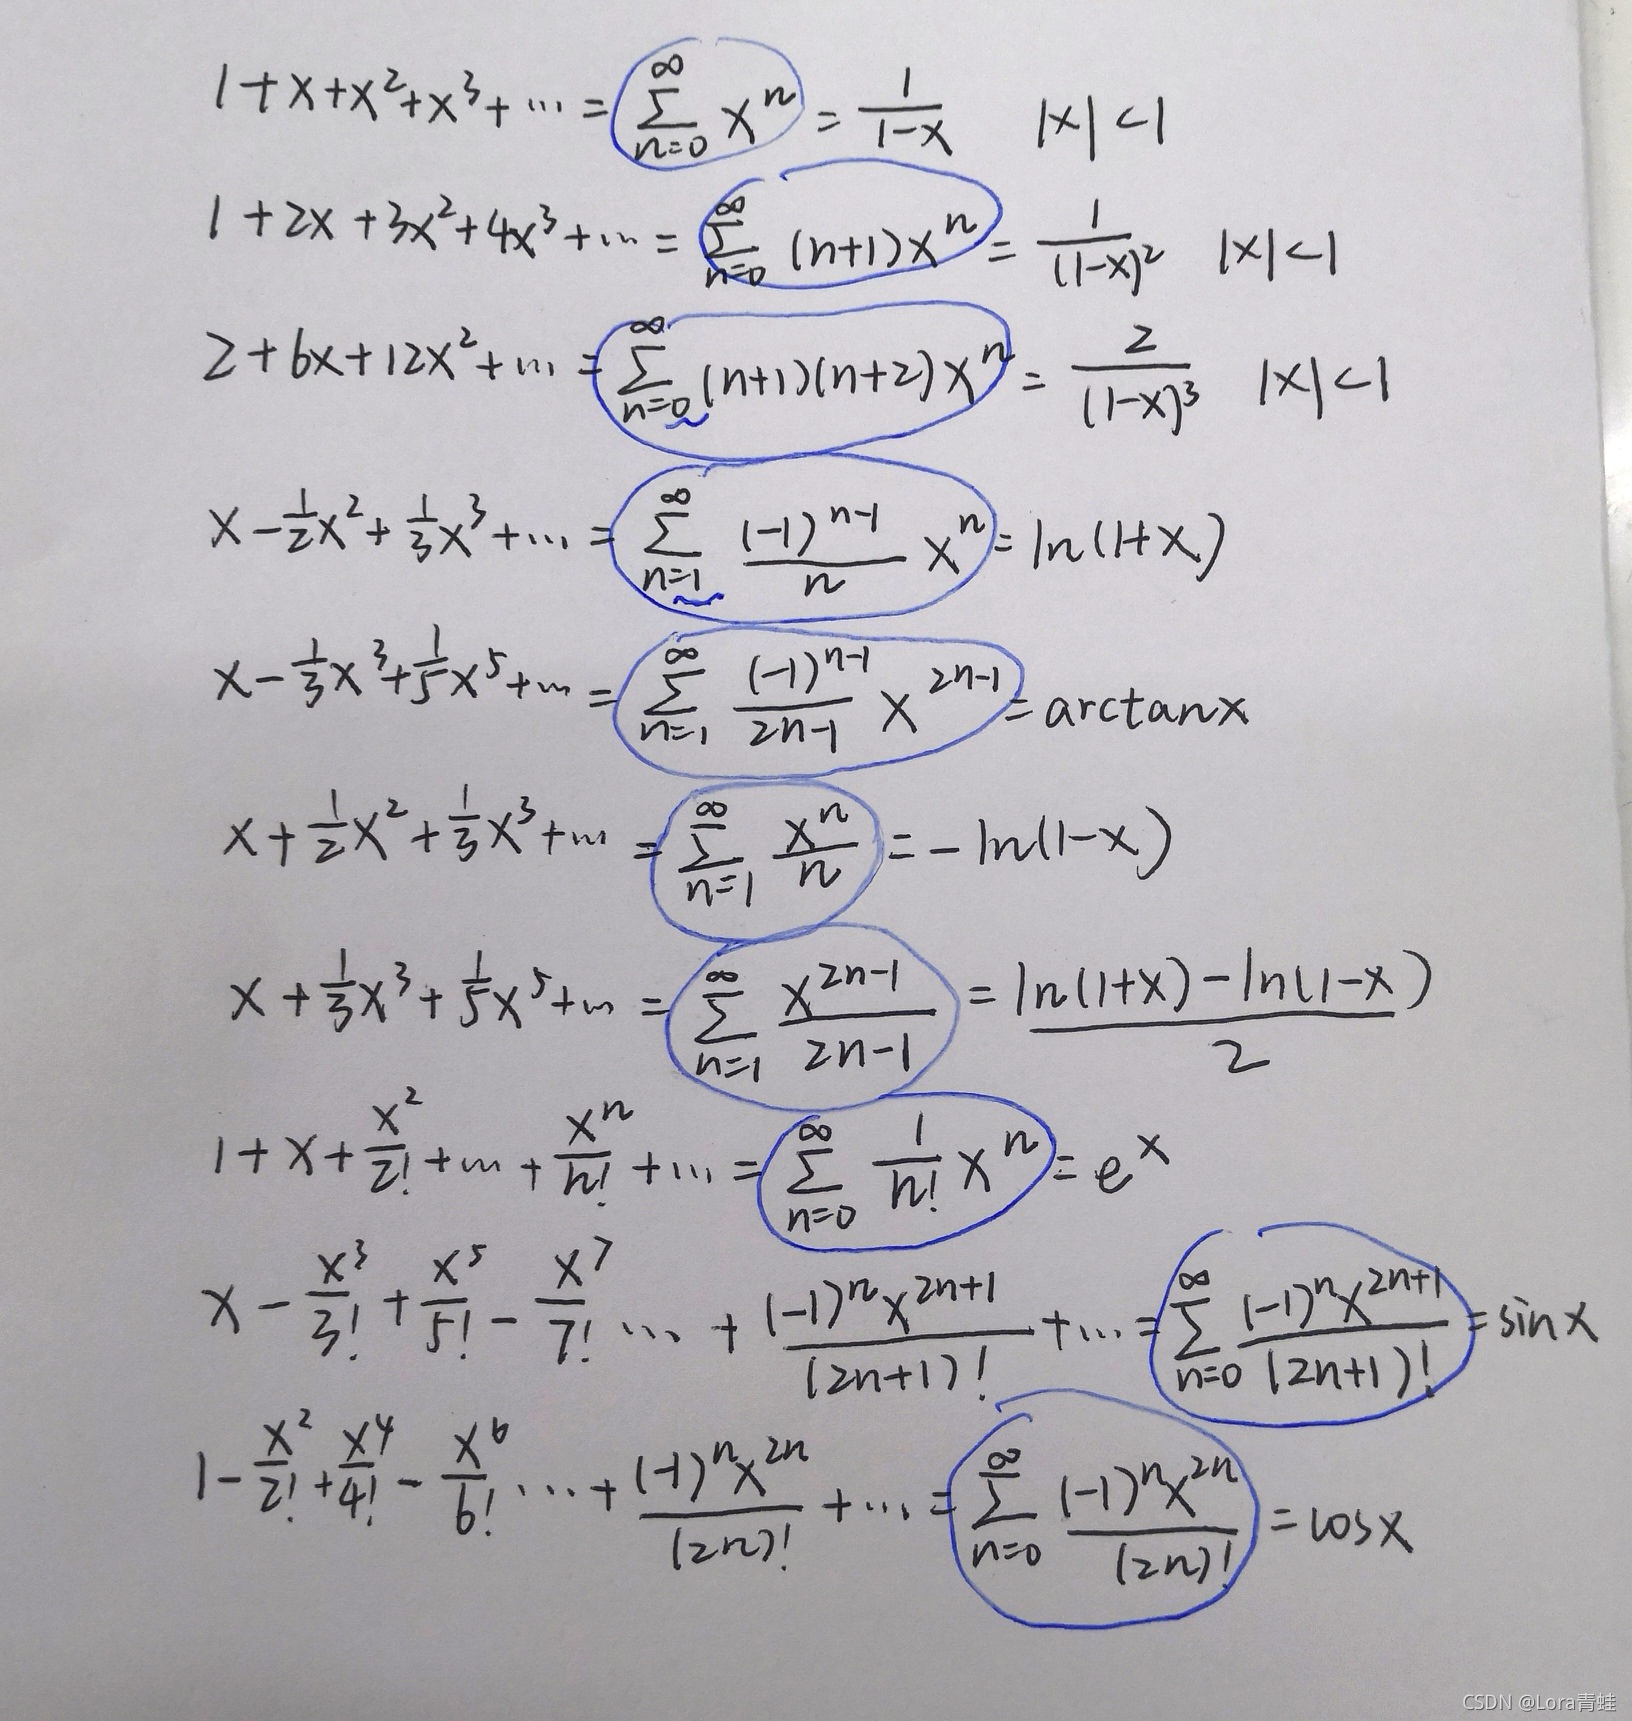 1+x+x²+x³+⋯ = ∑_{n=0}^{∞} xⁿ = \frac{1}{1-x} |x|<1
1+2x+3x²+4x³+⋯ = ∑_{n=0}^{∞} (n+1)xⁿ = \frac{1}{(1-x)²} |x|<1
2+6x+12x²+⋯ = ∑_{n=0}^{∞} (n+1)(n+2)xⁿ = \frac{2}{(1-x)³} |x|<1
x-\frac{1}{2}x²+\frac{1}{3}x³+⋯ = ∑_{n=1}^{∞} \frac{(-1)^{n-1}}{n} xⁿ = ln(1+x)
x-\frac{1}{3}x³+\frac{1}{5}x⁵+⋯ = ∑_{n=1}^{∞} \frac{(-1)^{n-1}}{2n-1} x^{2n-1} = arctanx
x+\frac{1}{2}x²+\frac{1}{3}x³+⋯ = ∑_{n=1}^{∞} \frac{xⁿ}{n} = -ln(1-x)
x+\frac{1}{3}x³+\frac{1}{5}x⁵+⋯ = ∑_{n=1}^{∞} \frac{x^{2n-1}}{2n-1} = \frac{ln(1+x)-ln(1-x)}{2}
1+x+\frac{x²}{2!}+⋯+\frac{xⁿ}{n!}+⋯ = ∑_{n=0}^{∞} \frac{1}{n!} xⁿ = e^x
x-\frac{x³}{3!}+\frac{x⁵}{5!}-\frac{x⁷}{7!}⋯+\frac{(-1)ⁿx^{2n+1}}{(2n+1)!}+⋯ = ∑_{n=0}^{∞} \frac{(-1)ⁿx^{2n+1}}{(2n+1)!} = sinx
1-\frac{x²}{2!}+\frac{x⁴}{4!}-\frac{x⁶}{6!}⋯+\frac{(-1)ⁿx^{2n}}{(2n)!}+⋯ = ∑_{n=0}^{∞} \frac{(-1)ⁿx^{2n}}{(2n)!} = cosx
CSDN @Lora青蛙